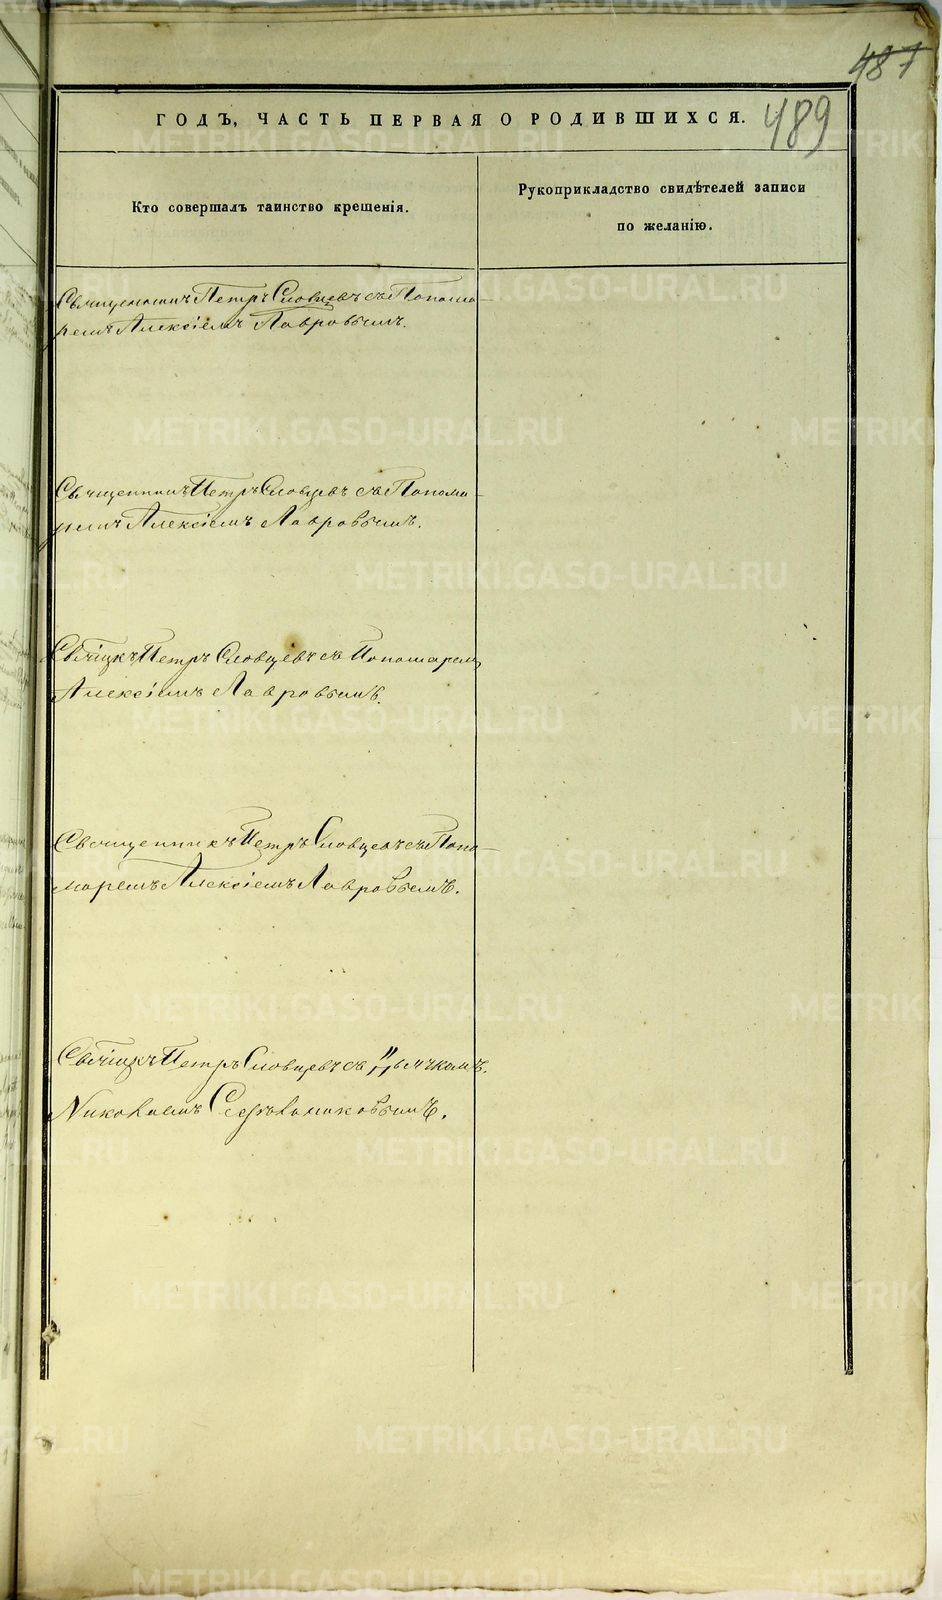 487
489
ГОДЪ, ЧАСТЬ ПЕРВАЯ О РОДИВШИХСЯ.
Кто совершалъ таинство крещенія.
Рукоприкладство свидѣтелей записи
по желанію.
Священникъ Петръ Словцевъ съ Понома-
ремъ Алексіемъ Лавровымъ.
Священникъ Петръ Словцевъ съ Понома-
ремъ Алексіемъ Лавровымъ.
Петръ Словцевъ съ Пономаремъ
Алексіемъ Лавровымъ.
Священникъ Петръ Словцевъ съ Поно-
маремъ Алексіемъ Лавровымъ.
Петръ Словцевъ съ Дьячкомъ
Николаемъ
METRIKI.GASO-URAL.RU